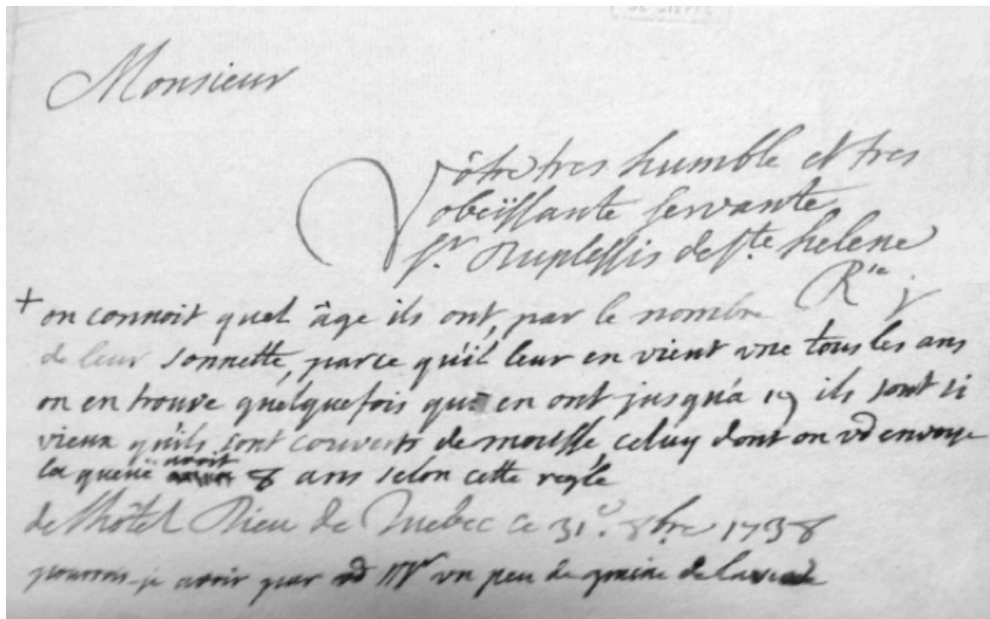 Monsieur
Vôtre tres humble et tres
obeïssante servante
Sr. Duplessis de Ste. helene
Rie j
+ on connoit quel âge ils ont, par le nombre
de leur sonnette, parce qu'il leur en vient vne tous les ans
on en trouve quelquefois qui en ont jusqu'a 19 ils sont si
vieux qu'ils sont couverts de mousse, celuy dont on vs envoye
la queüe avoit 8 ans selon cette regle
de l'hôtel Dieu de Quebec ce 31e. 8bre 1738
pourrois-je avoir par vn peu de graine de